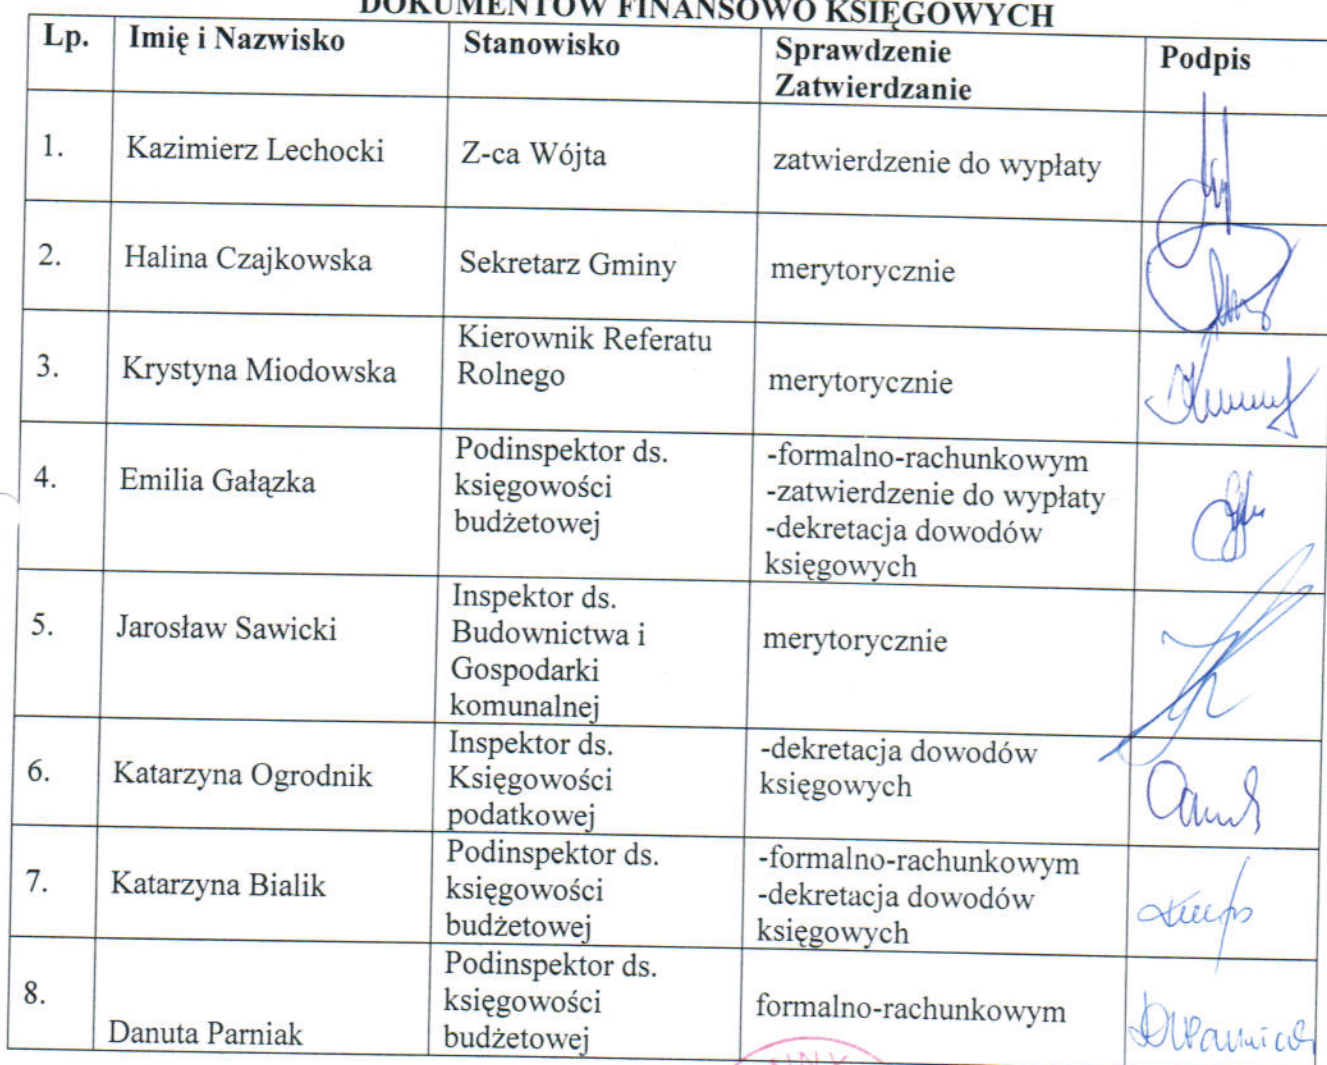 DOKUMENTÓW FINANSOWO KSIĘGOWYCH
Lp. Imię i Nazwisko Stanowisko Sprawdzenie Zatwierdzanie Podpis
1. Kazimierz Lechocki Z-ca Wójta zatwierdzenie do wypłaty
2. Halina Czajkowska Sekretarz Gminy merytorycznie
3. Krystyna Miodowska Kierownik Referatu
Rolnego merytorycznie
4. Emilia Gałązka Podinspektor ds.
księgowości
budżetowej
-formalno-rachunkowym
-zatwierdzenie do wypłaty
-dekretacja dowodów
księgowych
5. Jarosław Sawicki Inspektor ds.
Budownictwa i
Gospodarki
komunalnej
merytorycznie
6. Katarzyna Ogrodnik Inspektor ds.
Księgowości
podatkowej
-dekretacja dowodów
księgowych
7. Katarzyna Bialik Podinspektor ds.
księgowości
budżetowej
-formalno-rachunkowym
-dekretacja dowodów
księgowych
8. Danuta Parniak Podinspektor ds.
księgowości
budżetowej
formalno-rachunkowym